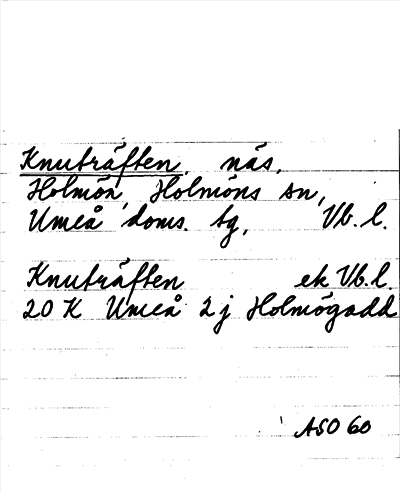 Knuträften, näs,
Holmön, Holmöns sn,
Umeå doms. tg, Vb. l.
Knuträften ek Vb.l.
20 K Umeå 2j Holmögadd
ASO 60